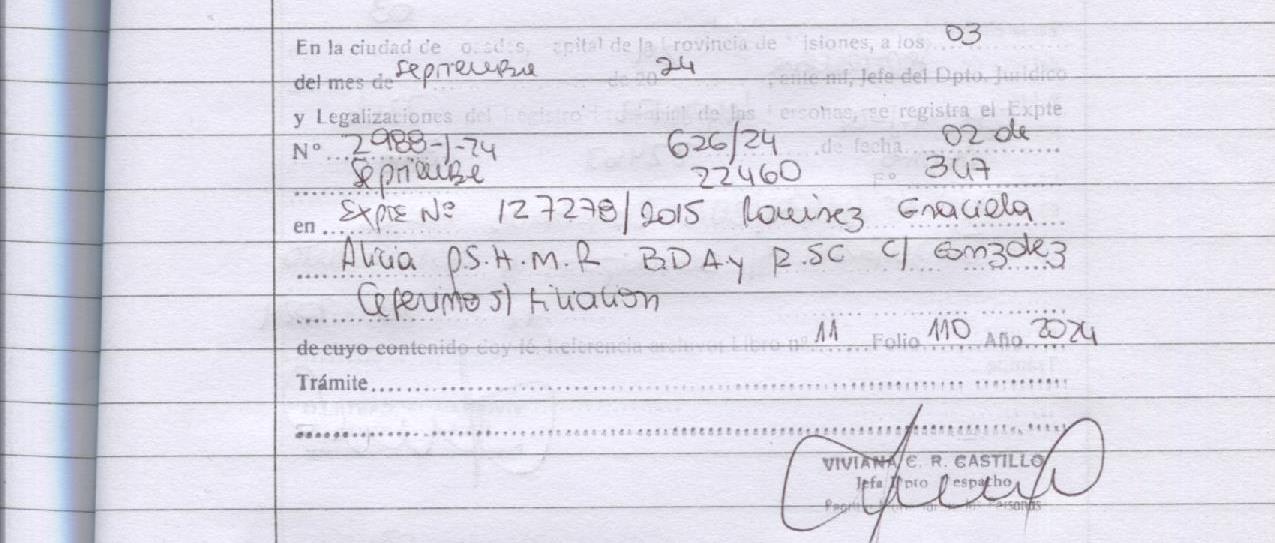 En la ciudad de Posadas, capital de la Provincia de Misiones, a los 03
del mes de septiembre de 20 24, ante mí, Jefa del Dpto. Jurídico
y Legalizaciones del Registro Provincial de las Personas, se registra el Expte
Nº 2988-J-24 626/24 de fecha 02 de
septiembre 22460 Fº 347
en Expte Nº 127278/2015 Ramirez Graciela
Alicia p.S.H.M.R B.D.A y R.SC c/ Gonzalez
Ceferino s/ Filiacion
de cuyo contenido doy fé. Referencia archivo: Libro nº 11 Folio 110 Año 2024
Trámite
VIVIANA C. R. CASTILLO
Jefa Dpto Despacho
de las Personas